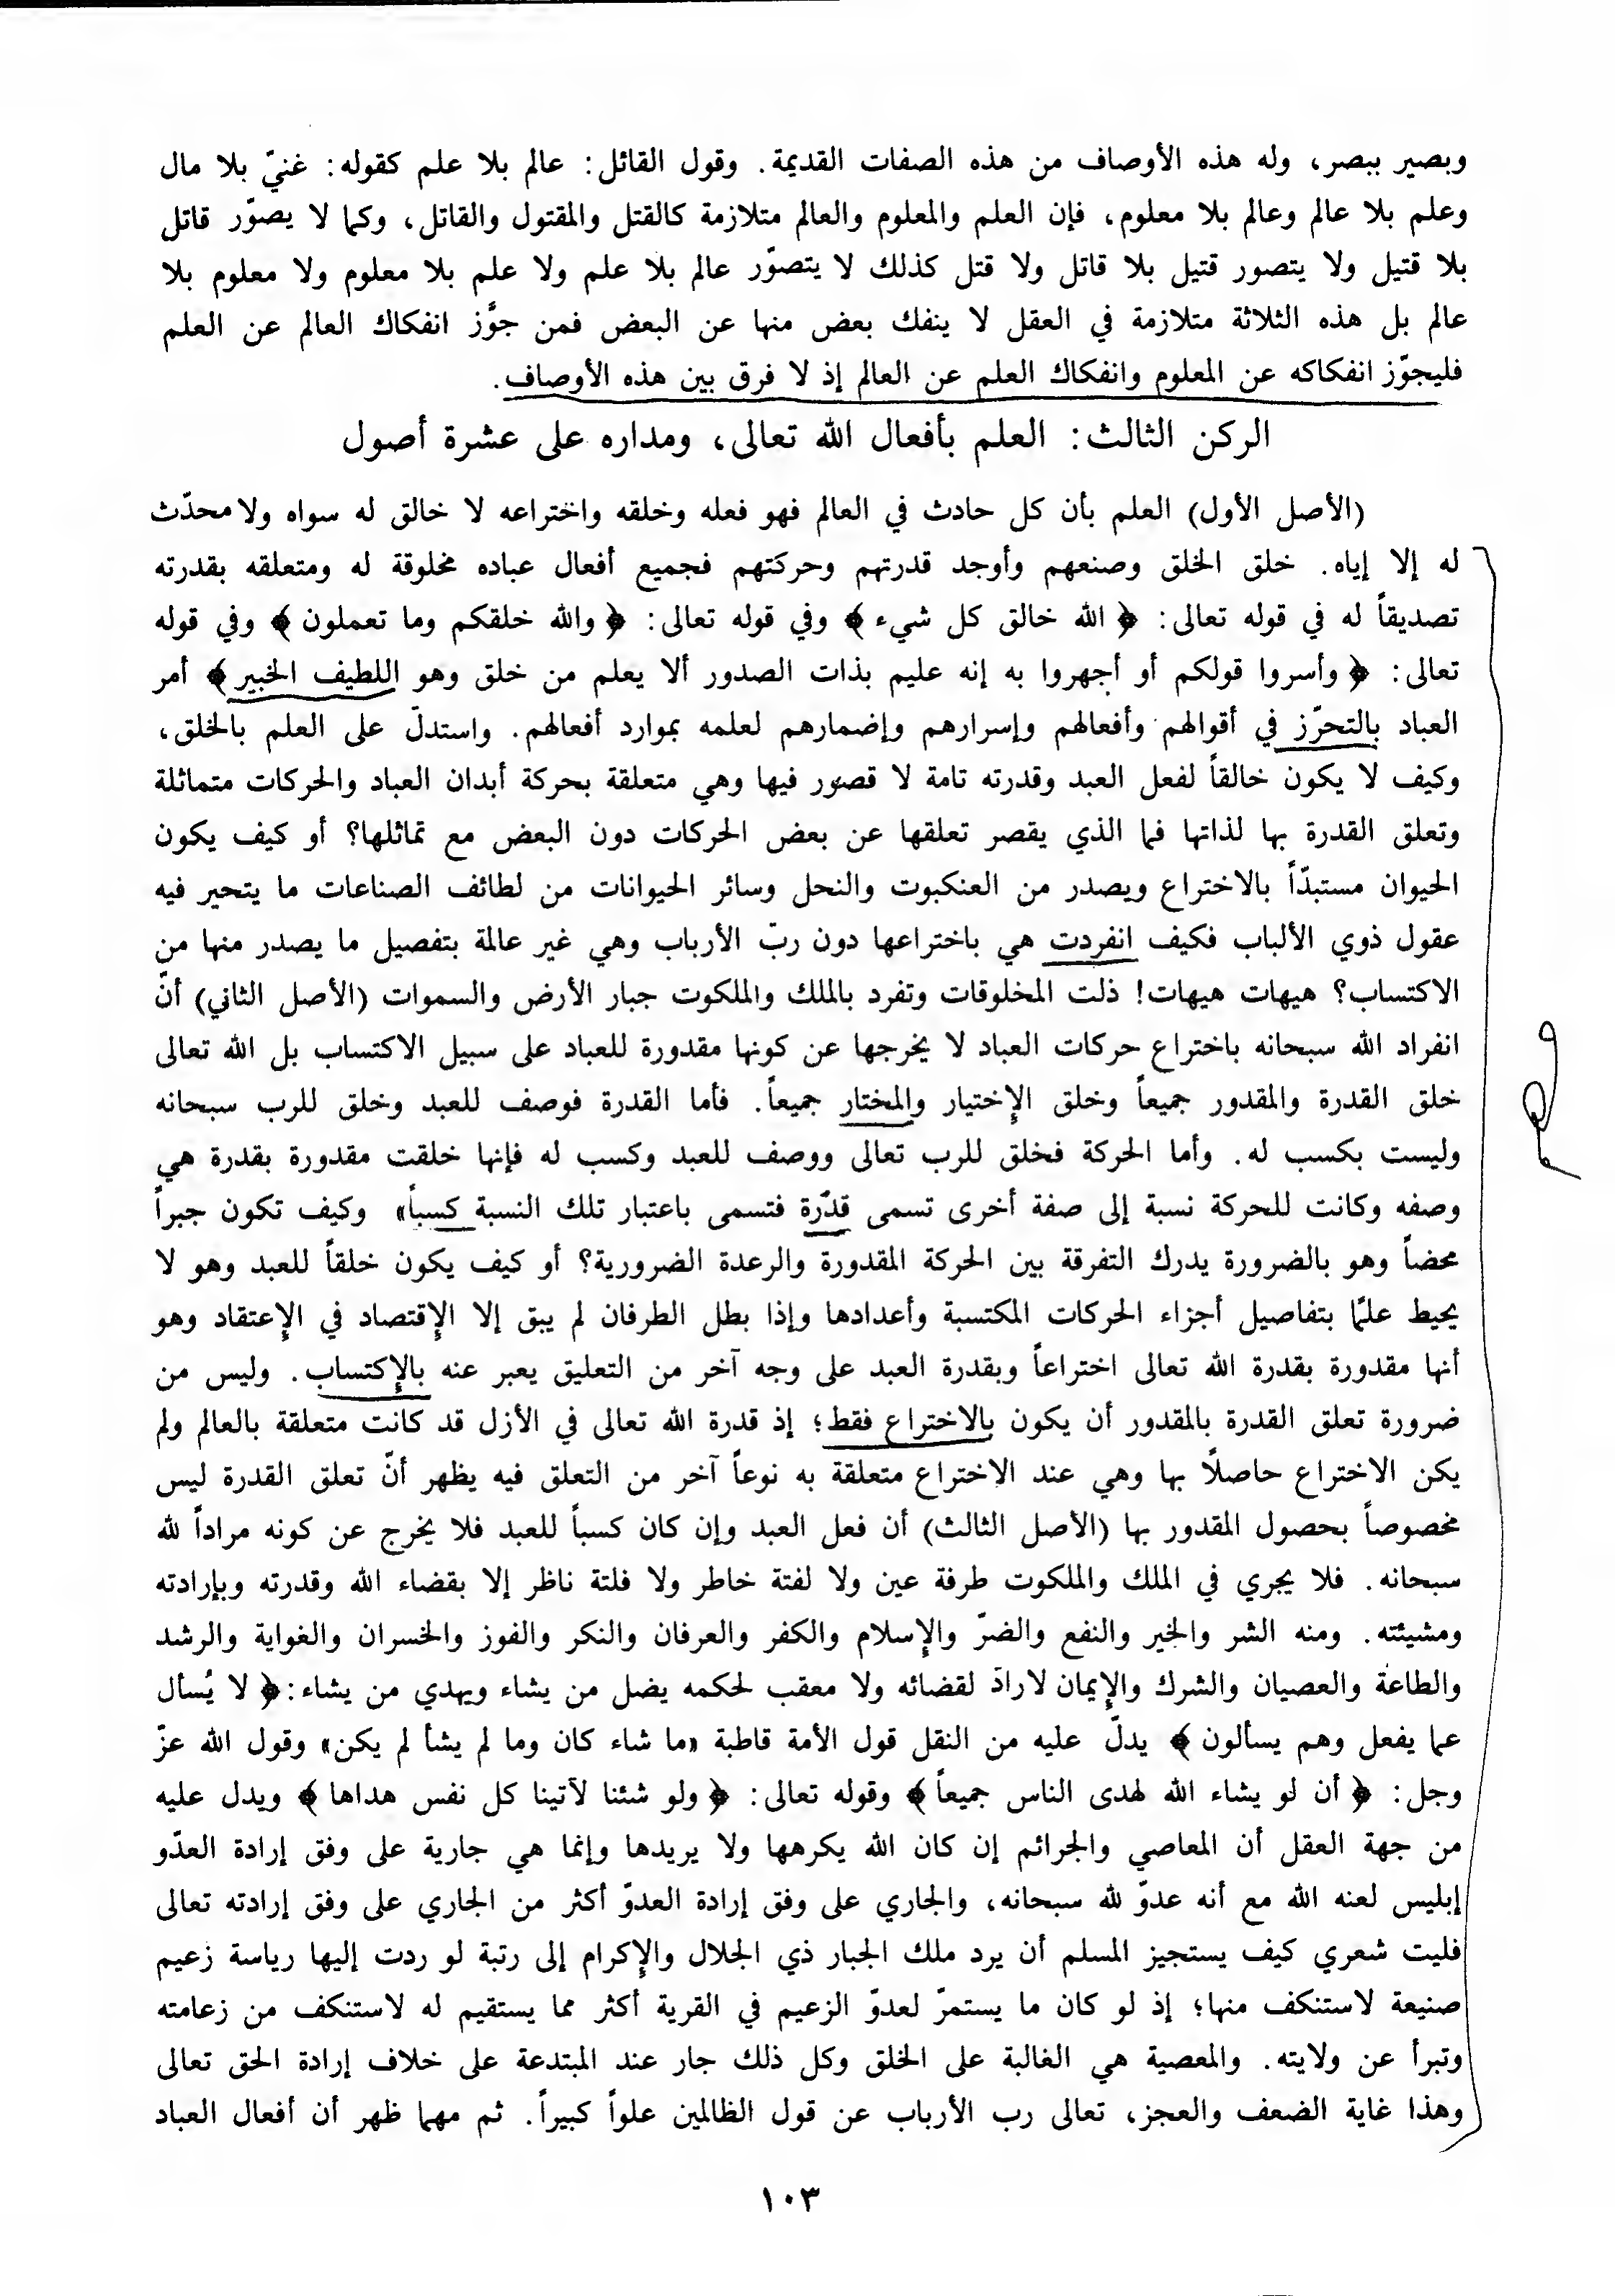 وبصير ببصر، وله هذه الأوصاف من هذه الصفات القديمة. وقول القائل: عالم بلا علم كقوله: غنيّ بلا مال
وعلم بلا عالم وعالم بلا معلوم، فإن العلم والمعلوم والعالم متلازمة كالقتل والمقتول والقاتل، وكما لا يصوّر قاتل
بلا قتيل ولا يتصور قتيل بلا قاتل ولا قتل كذلك لا يتصوّر عالم بلا علم ولا علم بلا معلوم ولا معلوم بلا
عالم بل هذه الثلاثة متلازمة في العقل لا ينفك بعض منها عن البعض فمن جوَّز انفكاك العالم عن العلم
فليجوّز انفكاكه عن المعلوم وانفكاك العلم عن العالم إذ لا فرق بين هذه الأوصاف.
الركن الثالث: العلم بأفعال الله تعالى، ومداره على عشرة أصول
(الأصل الأول) العلم بأن كل حادث في العالم فهو فعله وخلقه واختراعه لا خالق له سواه ولا محدّث
له إلا إياه. خلق الخلق وصنعهم وأوجد قدرتهم وحركتهم فجميع أفعال عباده مخلوقة له ومتعلقه بقدرته
تصديقاً له في قوله تعالى: ﴿ الله خالق كل شيء ﴾ وفي قوله تعالى: ﴿ والله خلقكم وما تعملون ﴾ وفي قوله
تعالى: ﴿ وأسروا قولكم أو أجهروا به إنه عليم بذات الصدور ألا يعلم من خلق وهو اللطيف الخبير ﴾ أمر
العباد بالتحرّز في أقوالهم وأفعالهم وإسرارهم وإضمارهم لعلمه بموارد أفعالهم. واستدلّ على العلم بالخلق،
وكيف لا يكون خالقاً لفعل العبد وقدرته تامة لا قصور فيها وهي متعلقة بحركة أبدان العباد والحركات متماثلة
وتعلق القدرة بها لذاتها فما الذي يقصر تعلقها عن بعض الحركات دون البعض مع تماثلها؟ أو كيف يكون
الحيوان مستبدّاً بالاختراع ويصدر من العنكبوت والنحل وسائر الحيوانات من لطائف الصناعات ما يتحير فيه
عقول ذوي الألباب فكيف انفردت هي باختراعها دون ربّ الأرباب وهي غير عالمة بتفصيل ما يصدر منها من
الاكتساب؟ هيهات هيهات! ذلت المخلوقات وتفرد بالملك والملكوت جبار الأرض والسموات (الأصل الثاني) أنّ
انفراد الله سبحانه باختراع حركات العباد لا يخرجها عن كونها مقدورة للعباد على سبيل الاكتساب بل الله تعالى
خلق القدرة والمقدور جميعاً وخلق الإختيار والمختار جميعاً. فأما القدرة فوصف للعبد وخلق للرب سبحانه
وليست بكسب له. وأما الحركة فخلق للرب تعالى ووصف للعبد وكسب له فإنها خلقت مقدورة بقدرة هي
وصفه وكانت للحركة نسبة إلى صفة أخرى تسمى قدّرة فتسمى باعتبار تلك النسبة كسباً» وكيف تكون جبراً
محضاً وهو بالضرورة يدرك التفرقة بين الحركة المقدورة والرعدة الضرورية؟ أو كيف يكون خلقاً للعبد وهو لا
يحيط علمًا بتفاصيل أجزاء الحركات المكتسبة وأعدادها وإذا بطل الطرفان لم يبق إلا الإقتصاد في الإعتقاد وهو
أنها مقدورة بقدرة الله تعالى اختراعاً وبقدرة العبد على وجه آخر من التعليق يعبر عنه بالإكتساب. وليس من
ضرورة تعلق القدرة بالمقدور أن يكون بالاختراع فقط؛ إذ قدرة الله تعالى في الأزل قد كانت متعلقة بالعالم ولم
يكن الاختراع حاصلًا بها وهي عند الاختراع متعلقة به نوعاً آخر من التعلق فيه يظهر أنّ تعلق القدرة ليس
مخصوصاً بحصول المقدور بها (الأصل الثالث) أن فعل العبد وإن كان كسباً للعبد فلا يخرج عن كونه مراداً لله
سبحانه. فلا يجري في الملك والملكوت طرفة عين ولا لفتة خاطر ولا فلتة ناظر إلا بقضاء الله وقدرته وبإرادته
ومشيئته. ومنه الشر والخير والنفع والضرّ والإسلام والكفر والعرفان والنكر والفوز والخسران والغواية والرشد
والطاعة والعصيان والشرك والإيمان لا رادّ لقضائه ولا معقب لحكمه يضل من يشاء ويهدي من يشاء: ﴿ لا يُسأل
عما يفعل وهم يسألون ﴾ يدلّ عليه من النقل قول الأمة قاطبة «ما شاء كان وما لم يشأ لم يكن» وقول الله عزّ
وجل: ﴿ أن لو يشاء الله لهدى الناس جميعاً ﴾ وقوله تعالى: ﴿ ولو شئنا لآتينا كل نفس هداها ﴾ ويدل عليه
من جهة العقل أن المعاصي والجرائم إن كان الله يكرهها ولا يريدها وإنما هي جارية على وفق إرادة العدّو
إبليس لعنه الله مع أنه عدوّ لله سبحانه، والجاري على وفق إرادة العدوّ أكثر من الجاري على وفق إرادته تعالى
فليت شعري كيف يستجيز المسلم أن يرد ملك الجبار ذي الجلال والإكرام إلى رتبة لو ردت إليها رياسة زعيم
صنيعة لاستنكف منها؛ إذ لو كان ما يستمرّ لعدوّ الزعيم في القرية أكثر مما يستقيم له لاستنكف من زعامته
وتبرأ عن ولايته. والمعصية هي الغالبة على الخلق وكل ذلك جار عند المبتدعة على خلاف إرادة الحق تعالى
وهذا غاية الضعف والعجز، تعالى رب الأرباب عن قول الظالمين علواً كبيراً. ثم مهما ظهر أن أفعال العباد
١٠٣